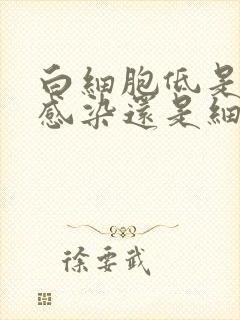 白細胞低是
感染還是細
徐要武